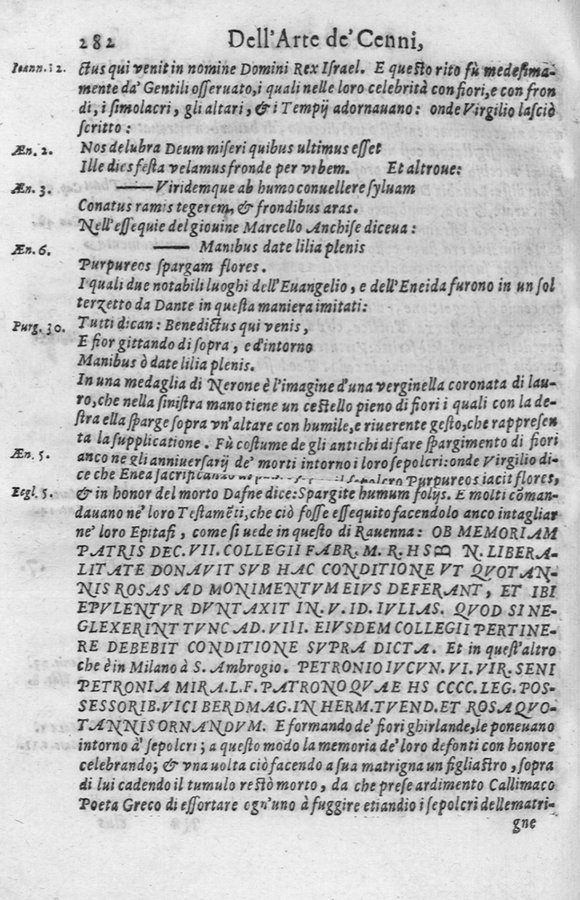 282 Dell'Arte de' Cenni,
Ioann. 12. ctus qui venit in nomine Domini Rex Israel. E questo rito fù medesima-
mente da' Gentili osseruato, i quali nelle loro celebrità con fiori, e con fron
di, i simolacri, gli altari, & i Tempij adornauano: onde Virgilio lasciò
scritto:
Æn. 2. Nos delubra Deum miseri quibus ultimus esset
Ille dies festa velamus fronde per vrbem. Et altroue:
Æn. 3. —— Viridemque ab humo conuellere syluam
Conatus ramis tegerem, & frondibus aras.
Nell'essequie del giouine Marcello Anchise diceua:
Æn. 6. —— Manibus date lilia plenis
Purpureos spargam flores.
I quali due notabili luoghi dell'Euangelio, e dell'Eneida furono in un sol
terzetto da Dante in questa maniera imitati:
Purg. 30. Tutti dican: Benedictus qui venis,
E fior gittando di sopra, e d'intorno
Manibus ò date lilia plenis.
In una medaglia di Nerone è l'imagine d'una verginella coronata di lau-
ro, che nella sinistra mano tiene un cestello pieno di fiori i quali con la de-
stra ella sparge sopra vn'altare con humile, e riuerente gesto, che rappresen
ta la supplicatione. Fù costume de gli antichi di fare spargimento di fiori
Æn. 5. anco ne gli anniuersarij de' morti intorno i loro sepolcri: onde Virgilio di-
ce che Enea sacrificando sepolcro Purpureos iacit flores,
Eegl. 5. & in honor del morto Dafne dice: Spargite humum folys. E molti cōman-
dauano ne' loro Testamēti, che ciò fosse essequito facendolo anco intagliar
ne' loro Epitafi, come si uede in questo di Rauenna: OB MEMORIAM
PATRIS DEC. VII. COLLEGII FABR. M. R. HS N. LIBERA-
LITATE DONAVIT SVB HAC CONDITIONE VT QVOTAN-
NIS ROSAS AD MONIMENTVM EIVS DEFERANT, ET IBI
EPVLENTVR DVNTAXIT IN. V. ID. IVLIAS. QVOD SI NE-
GLEXERINT TVNC AD. VIII. EIVSDEM COLLEGII PERTINE-
RE DEBEBIT CONDITIONE SVPRA DICTA. Et in quest'altro
che è in Milano à S. Ambrogio. PETRONIO IVCVN. VI. VIR. SENI
PETRONIA MIRA. L. F. PATRONO QVAE HS CCCC. LEG. POS-
SESSORIB. VICI BERDMAG. IN HERM. TVEND. ET ROSA QVO-
TANNIS ORNANDVM. E formando de' fiori ghirlande, le poneuano
intorno à' sepolcri; a questo modo la memoria de' loro defonti con honore
celebrando; & vna uolta ciò facendo a sua matrigna un figliastro, sopra
di lui cadendo il tumulo restò morto, da che prese ardimento Callimaco
Poeta Greco di essortare ogn'uno à fuggire etiandio i sepolcri delle matri-
gne